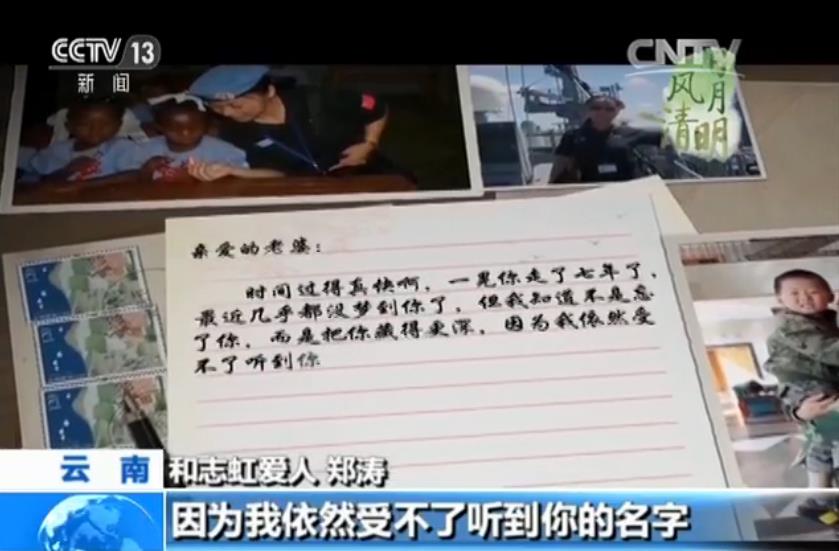 CCTV 13
新 闻
CNTV
风清月明
亲爱的老婆：
时间过得真快啊，一晃你走了七年了，
最近几乎都没梦到你了，但我知道不是忘
了你，而是把你藏得更深，因为我依然受
不了听到你
云 南
和志虹爱人 郑涛
因为我依然受不了听到你的名字